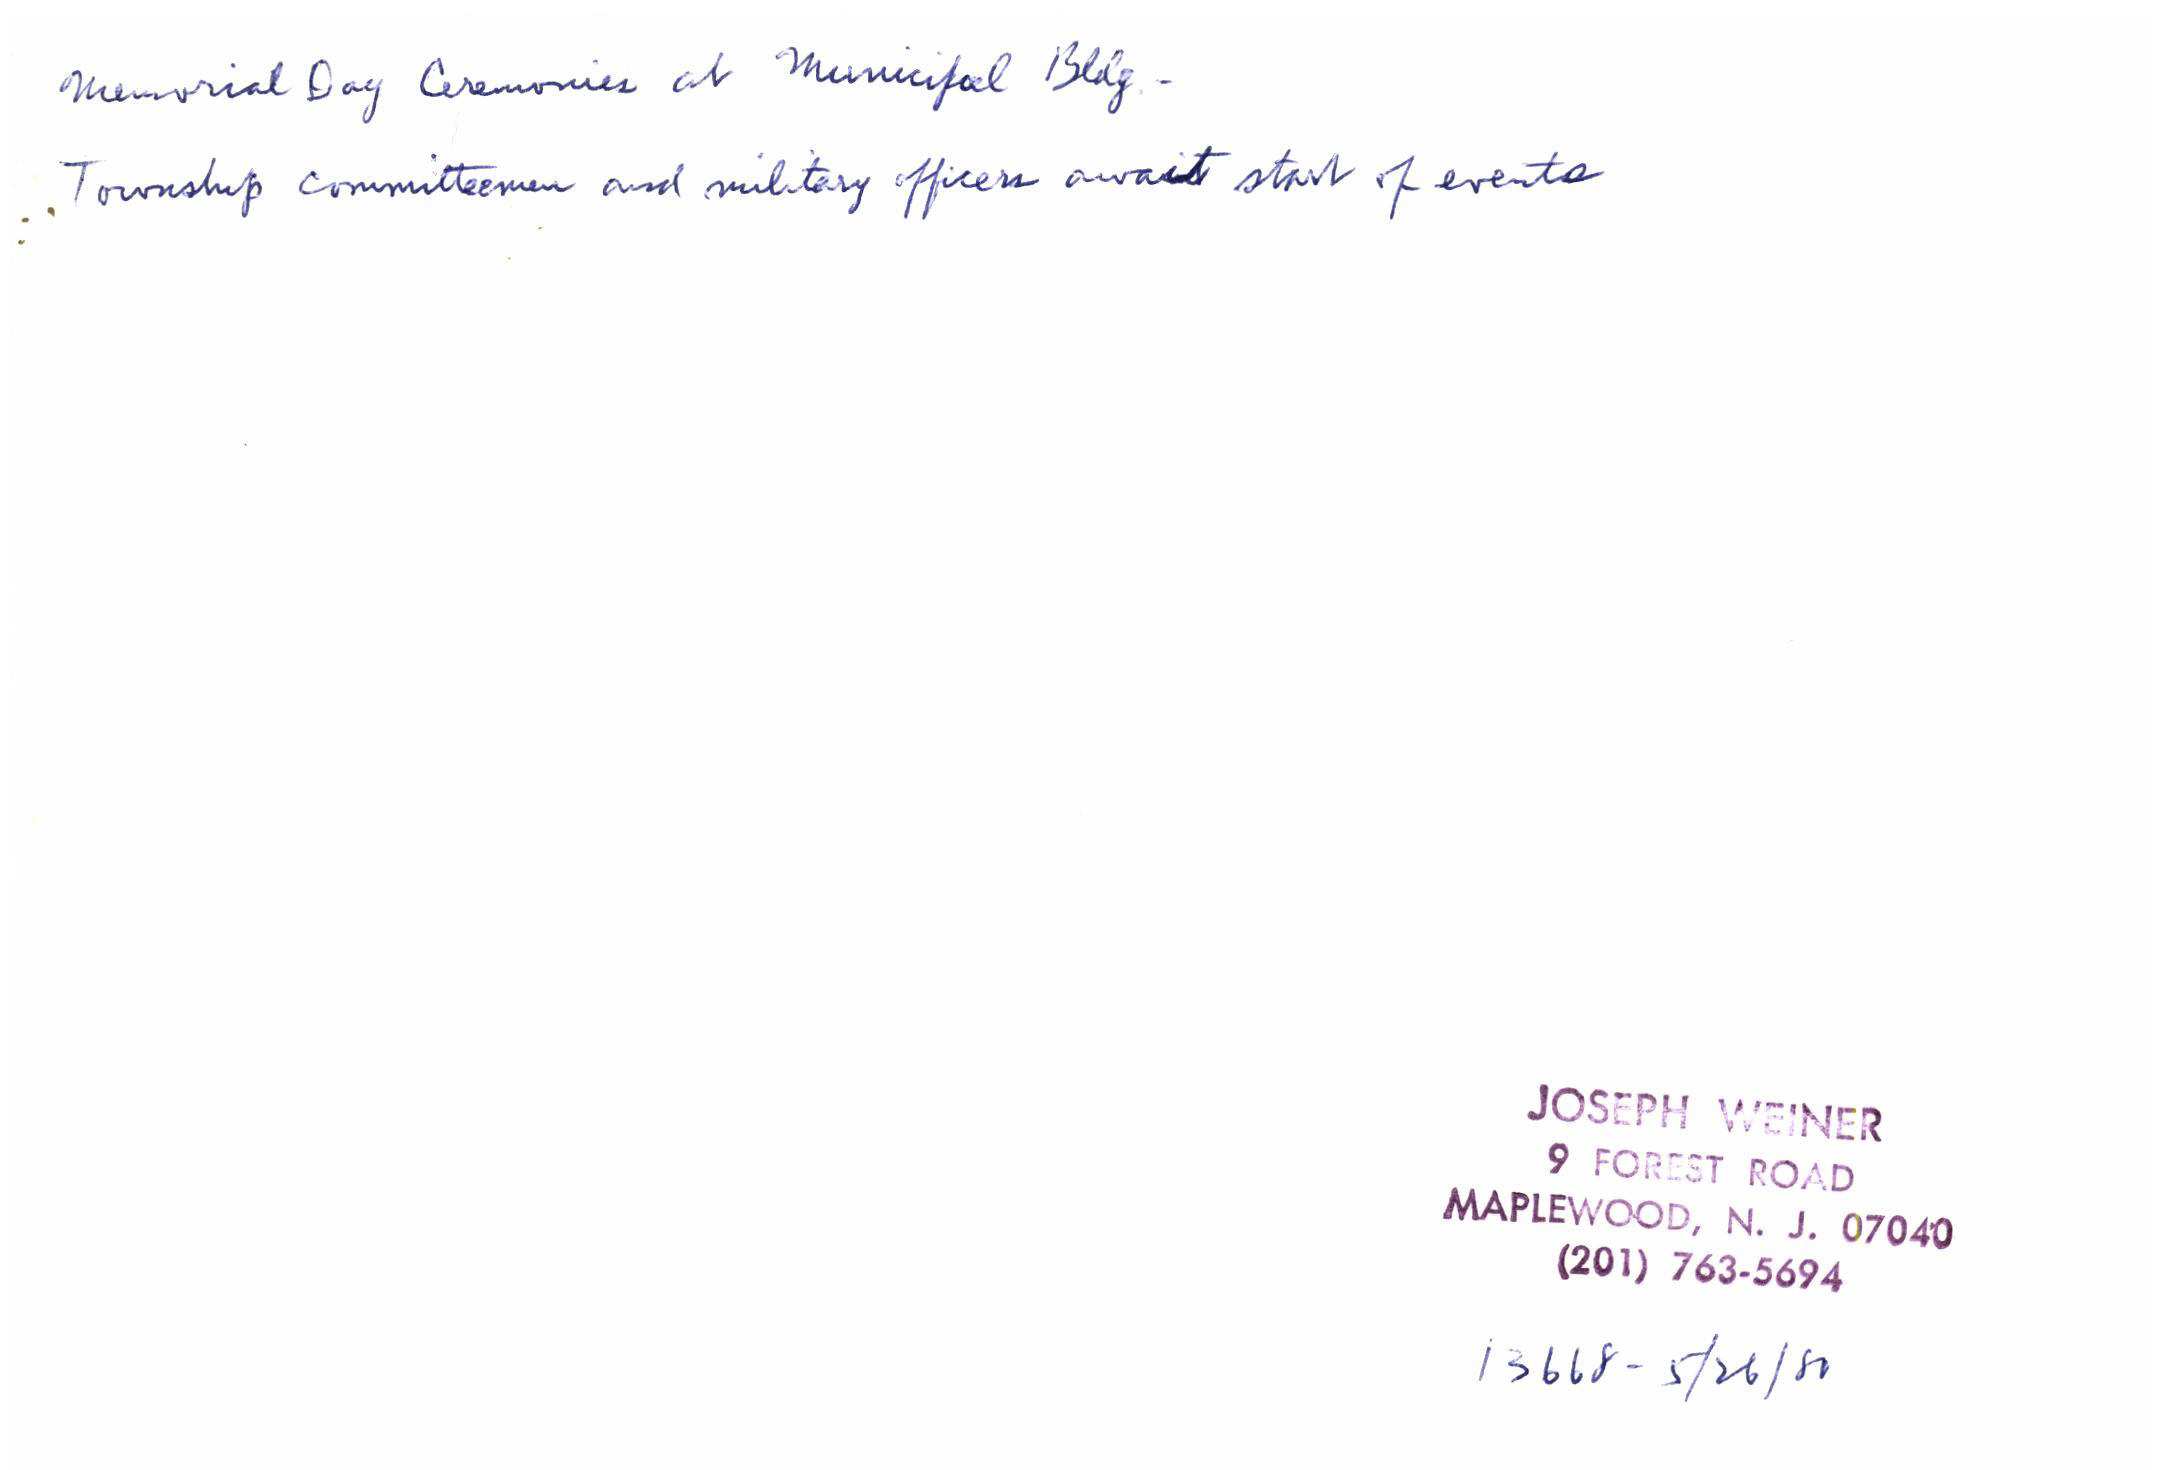 Memorial Day Ceremonies at Municipal Bldg. -
Township committeemen and military officers await start of events
JOSEPH WEINER
9 FOREST ROAD
MAPLEWOOD, N. J. 07040
(201) 763-5694
13668 - 5/26/80